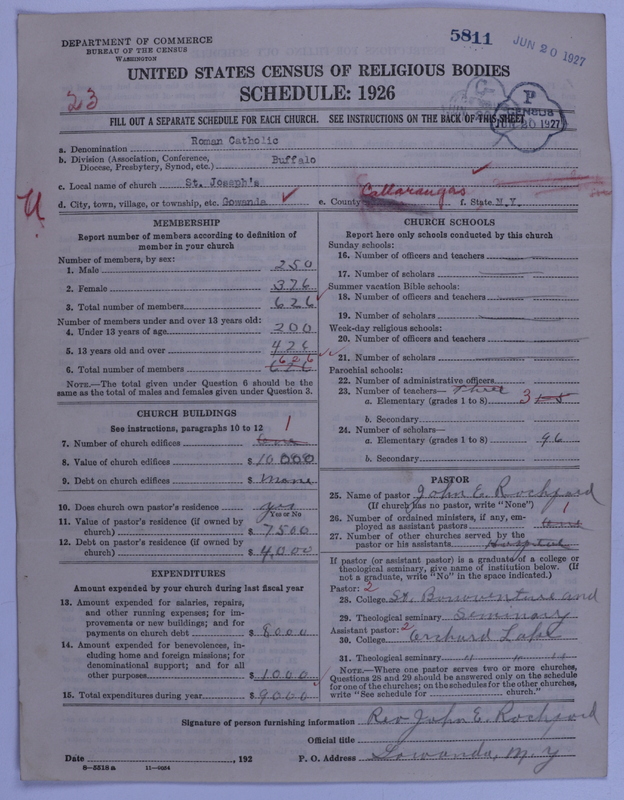 DEPARTMENT OF COMMERCE
BUREAU OF THE CENSUS
WASHINGTON
5811
JUN 20 1927
UNITED STATES CENSUS OF RELIGIOUS BODIES
SCHEDULE: 1926
23
P
CENSUS
JUN 20 1927
FILL OUT A SEPARATE SCHEDULE FOR EACH CHURCH. SEE INSTRUCTIONS ON THE BACK OF THIS SHEET
a. Denomination Roman Catholic
b. Division (Association, Conference, Diocese, Presbytery, Synod, etc.) Buffalo
c. Local name of church St. Joseph's
d. City, town, village, or township, etc. Gowanda e. County Cattaraugas f. State N.Y.
MEMBERSHIP
Report number of members according to definition of
member in your church
Number of members, by sex:
1. Male 250
2. Female 376
3. Total number of members 626
Number of members under and over 13 years old:
4. Under 13 years of age 200
5. 13 years old and over 426
6. Total number of members 626
NOTE.—The total given under Question 6 should be the
same as the total of males and females given under Question 3.
CHURCH BUILDINGS
See instructions, paragraphs 10 to 12
7. Number of church edifices 1
8. Value of church edifices $ 10000
9. Debt on church edifices $ None
10. Does church own pastor's residence? yes
Yes or No
11. Value of pastor's residence (if owned by
church) $ 7500
12. Debt on pastor's residence (if owned by
church) $ 4,000
EXPENDITURES
Amount expended by your church during last fiscal year
13. Amount expended for salaries, repairs,
and other running expenses; for im-
provements or new buildings; and for
payments on church debt $ 8000
14. Amount expended for benevolences, in-
cluding home and foreign missions; for
denominational support; and for all
other purposes $ 1000
15. Total expenditures during year $ 9000
CHURCH SCHOOLS
Report here only schools conducted by this church
Sunday schools:
16. Number of officers and teachers
17. Number of scholars
Summer vacation Bible schools:
18. Number of officers and teachers
19. Number of scholars
Week-day religious schools:
20. Number of officers and teachers
21. Number of scholars
Parochial schools:
22. Number of administrative officers
23. Number of teachers— Three
a. Elementary (grades 1 to 8) 3 1-8
b. Secondary
24. Number of scholars—
a. Elementary (grades 1 to 8) 96
b. Secondary
PASTOR
25. Name of pastor John E. Rochford
(If church has no pastor, write "None")
26. Number of ordained ministers, if any, em-
ployed as assistant pastors 1
27. Number of other churches served by the
pastor or his assistants Hospital
If pastor (or assistant pastor) is a graduate of a college or
theological seminary, give name of institution below. (If
not a graduate, write "No" in the space indicated.)
Pastor: 2
28. College St. Bonaventure and
29. Theological seminary Seminary
Assistant pastor: 2
30. College Orchard Lake
31. Theological seminary " " "
NOTE.—Where one pastor serves two or more churches,
Questions 28 and 29 should be answered only on the schedule
for one of the churches; on the schedules for the other churches,
write "See schedule for church."
Signature of person furnishing information Rev John E. Rochford
Official title
Date , 192 P. O. Address Gowanda, N.Y
8-5518a 11-9024